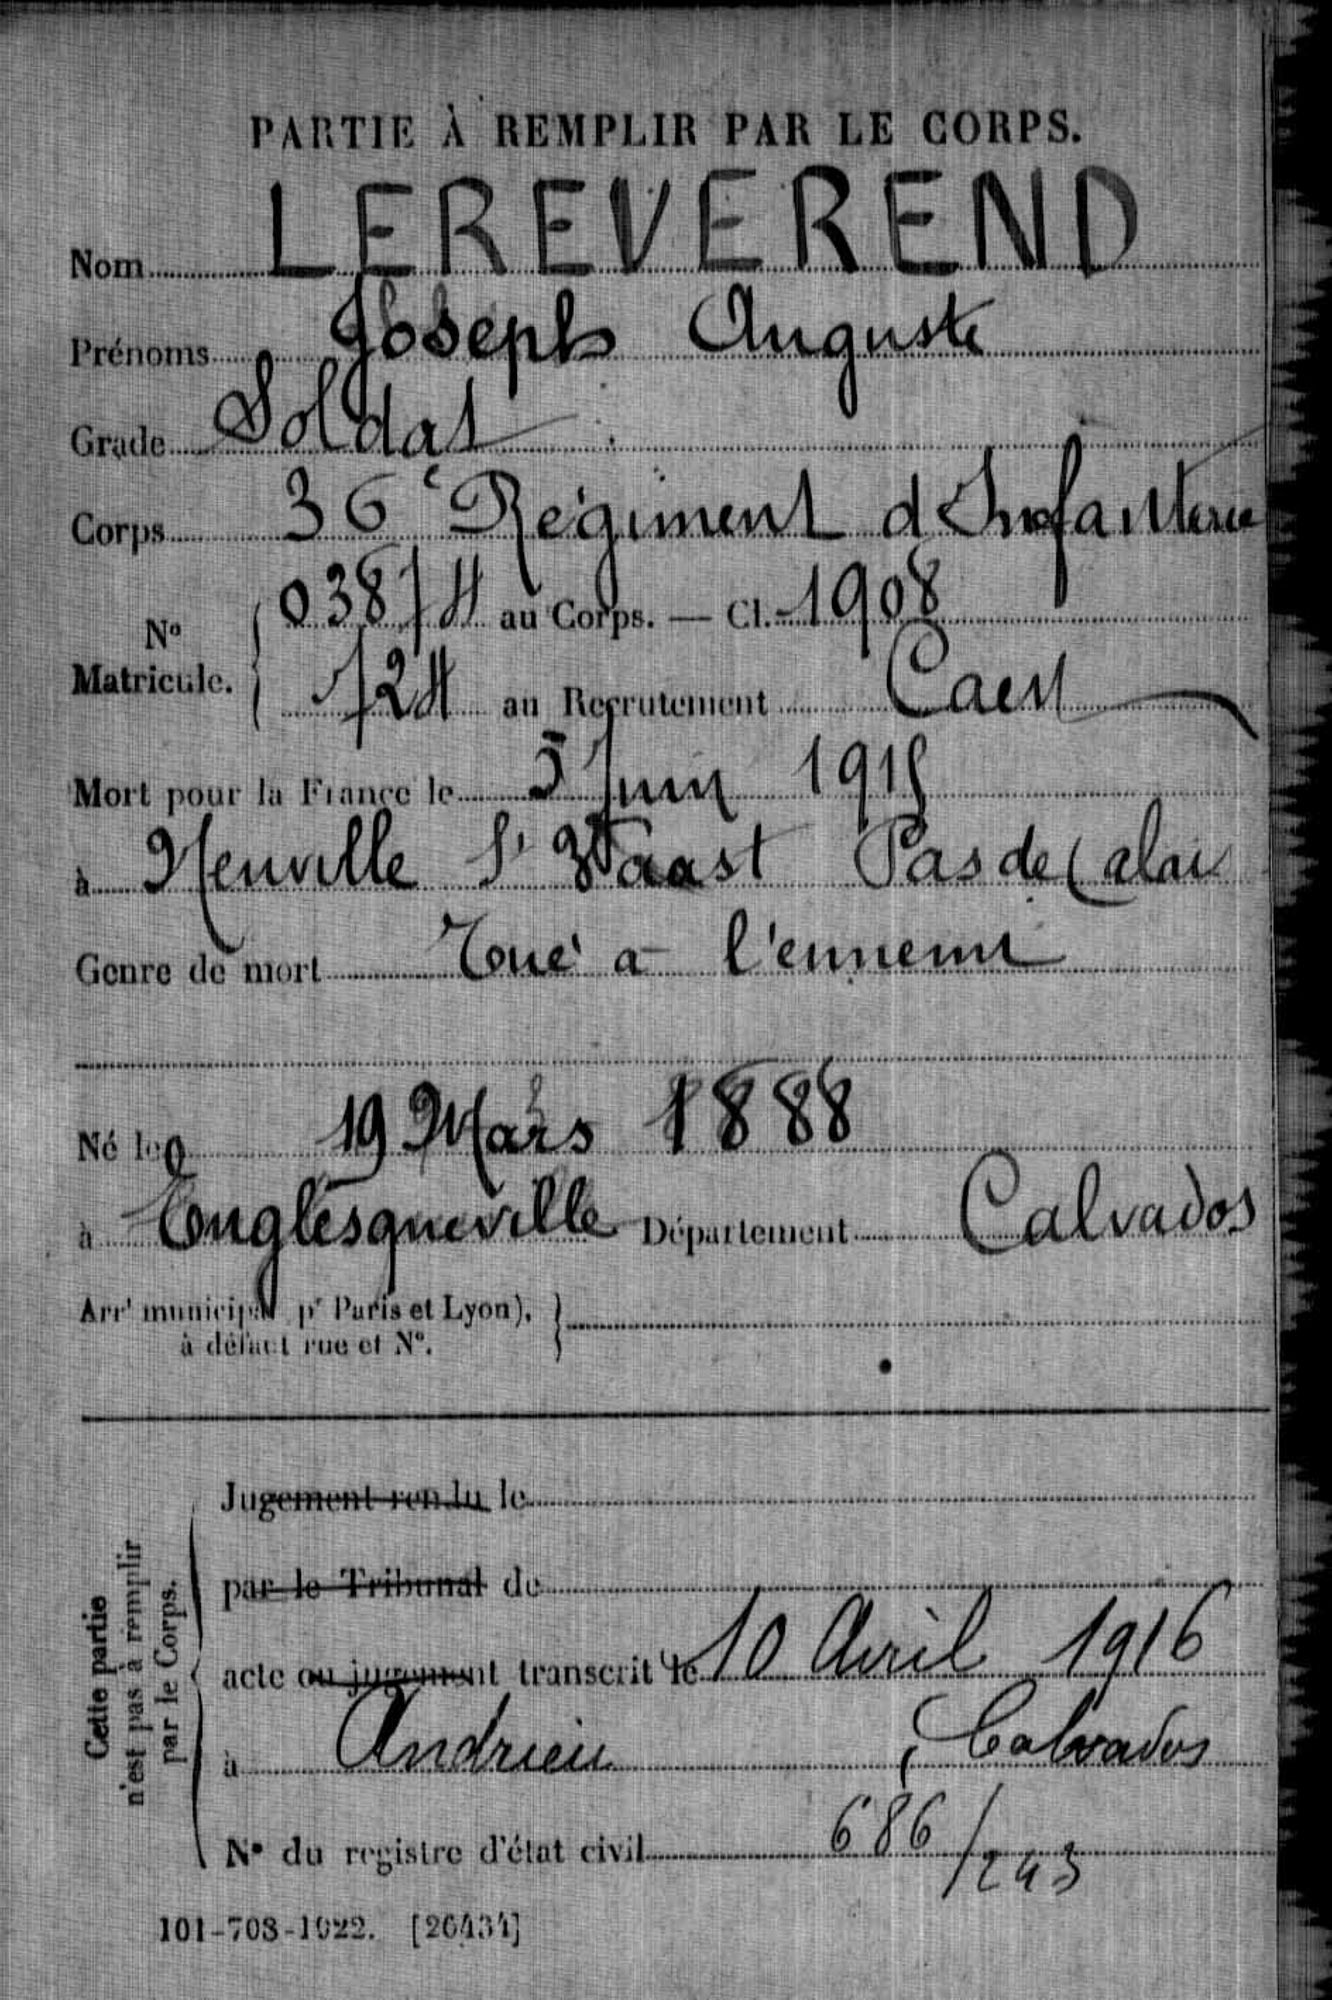 PARTIE À REMPLIR PAR LE CORPS.
Nom LEREVEREND
Prénoms Joseph Auguste
Grade Soldat
Corps 36e Régiment d Infanterie
No Matricule. 03874 au Corps. — Cl. 1908
724 au Recrutement Caen
Mort pour la France le 5 Juin 1915
à Neuville St Vaast Pas de Calais
Genre de mort Tué à l'ennemi
Né le 19 Mars 1888
à Englesqueville Département Calvados
Arrt municipal pr Paris et Lyon),
à défaut rue et No.
Jugement rendu le
par le Tribunal de
acte ou jugement transcrit le 10 Avril 1916
à Andrieu, Calvados
No du registre d'état civil 686/243
Cette partie
n'est pas à remplir
par le Corps.
101-708-1922. [26434]